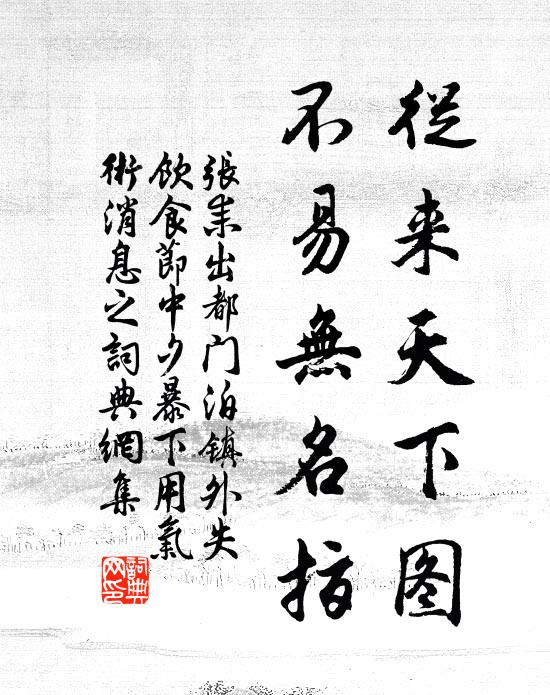 從来天下图
不易無名指
張耒出都門泊鎮外失
飲食節中夕暴下用氣
術消息之詞典網集
詞典网印